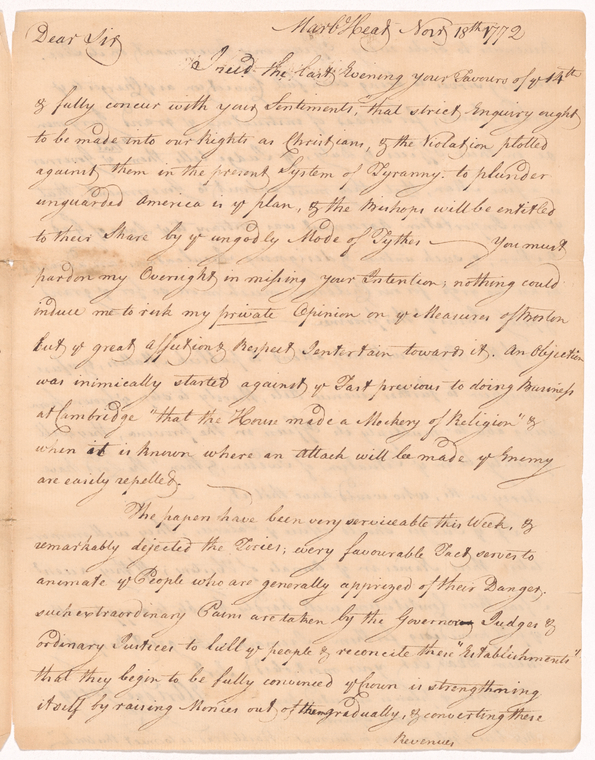 Marbd Head Novr 18th 1772
Dear Sir
I recd the last Evening your Favours of ye 14th
& fully concur with your Sentiments, "that strict Enquiry ought
to be made into our Rights as Christians, & the Violation plotted
against them in the present System of Tyranny: to plunder
unguarded America is ye plan, & the Bishops will be entitled
to their Share by ye ungodly Mode of Tythes — You must
pardon my Oversight in missing your Intention; nothing could
induce me to risk my private Opinion on ye Measures of Boston
but ye great Affection & Respect I entertain towards it. An Objection
was inimically started against ye Fast previous to doing Business
at Cambridge "that the House made a Mockery of Religion" &
when it is known where an Attack will be made ye Enemy
are easily repelled. —
The papers have been very serviceable this Week, &
remarkably dejected the Tories; every favourable Fact serves to
animate ye People who are generally apprized of their Danger;
such extraordinary Pains are taken by the Governor Judges &
ordinary Justices to lull ye people & reconcile these "Establishments"
that they begin to be fully convinced ye Crown is strengthning
itself by raising Monies out of them gradually, & converting these
Revenues